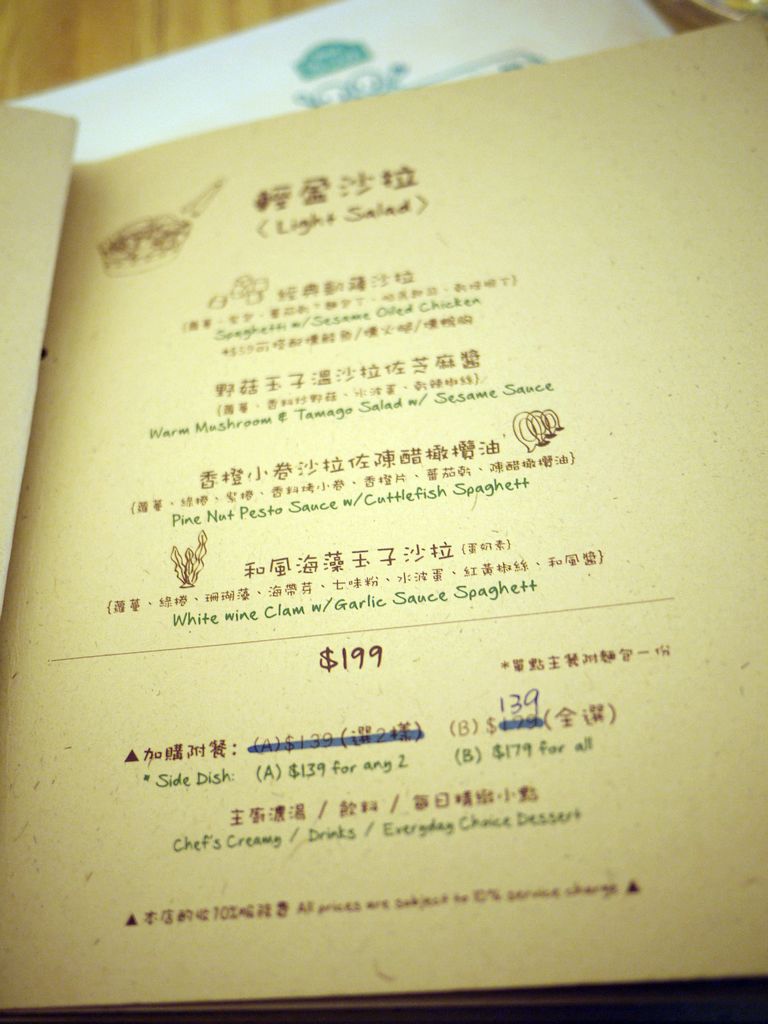 輕盈沙拉
(Light Salad)
經典凱薩沙拉
Spaghetti w/Sesame Oiled Chicken
野菇玉子溫沙拉佐芝麻醬
{蘿蔓、香料炒野菇、水波蛋、乾辣椒絲}
Warm Mushroom & Tamago Salad w/ Sesame Sauce
香橙小卷沙拉佐陳醋橄欖油
{蘿蔓、綠捲、紫捲、香料烤小卷、香橙片、蕃茄乾、陳醋橄欖油}
Pine Nut Pesto Sauce w/Cuttlefish Spaghett
和風海藻玉子沙拉 {蛋奶素}
{蘿蔓、綠捲、珊瑚藻、海帶芽、七味粉、水波蛋、紅黃椒絲、和風醬}
White wine Clam w/Garlic Sauce Spaghett
$199
*單點主餐附麵包一份
139
▲加購附餐: (A)$139(選2樣) (B) $179(全選)
* Side Dish: (A) $139 for any 2 (B) $179 for all
主廚濃湯 / 飲料 / 每日精緻小點
Chef's Creamy / Drinks / Everyday Choice Dessert
▲本店酌收10%服務費 All prices are subject to 10% service charge▲